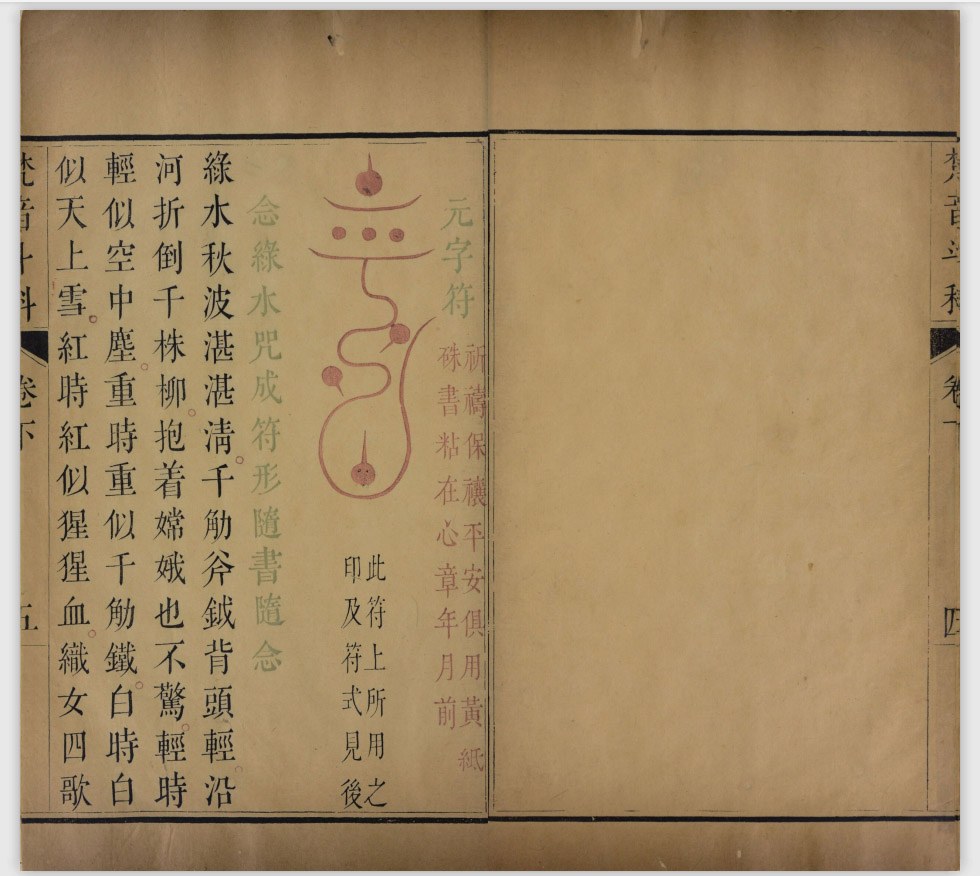 梵音斗科 卷下 四
元字符
祈禱保禳平安俱用黃紙
硃書粘在心章年月前
此符上所用之
印及符式見後
念綠水咒成符形隨書隨念
綠水秋波湛湛淸千觔斧鉞背頭輕沿
河折倒千株柳抱着嫦娥也不驚輕時
輕似空中塵重時重似千觔鐵白時白
似天上雪紅時紅似猩猩血織女四歌
梵音斗科 卷下 五